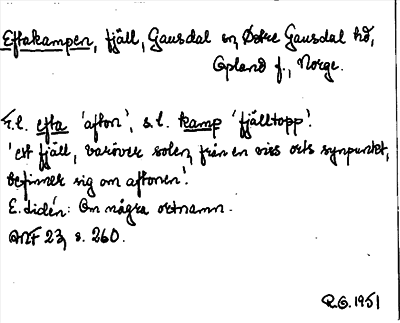 Eftakampen, fjäll, Gausdal sn, Östre Gausdal hd,
Opland f., Norge.
F.l. efta 'afton', s.l. kamp 'fjälltopp'.
'ett fjäll, varöver solen, från en viss orts synpunkt,
befinner sig om aftonen'.
E. Lidén: Om några ortnamn.
ANF 23, s. 260.
R.O. 1951